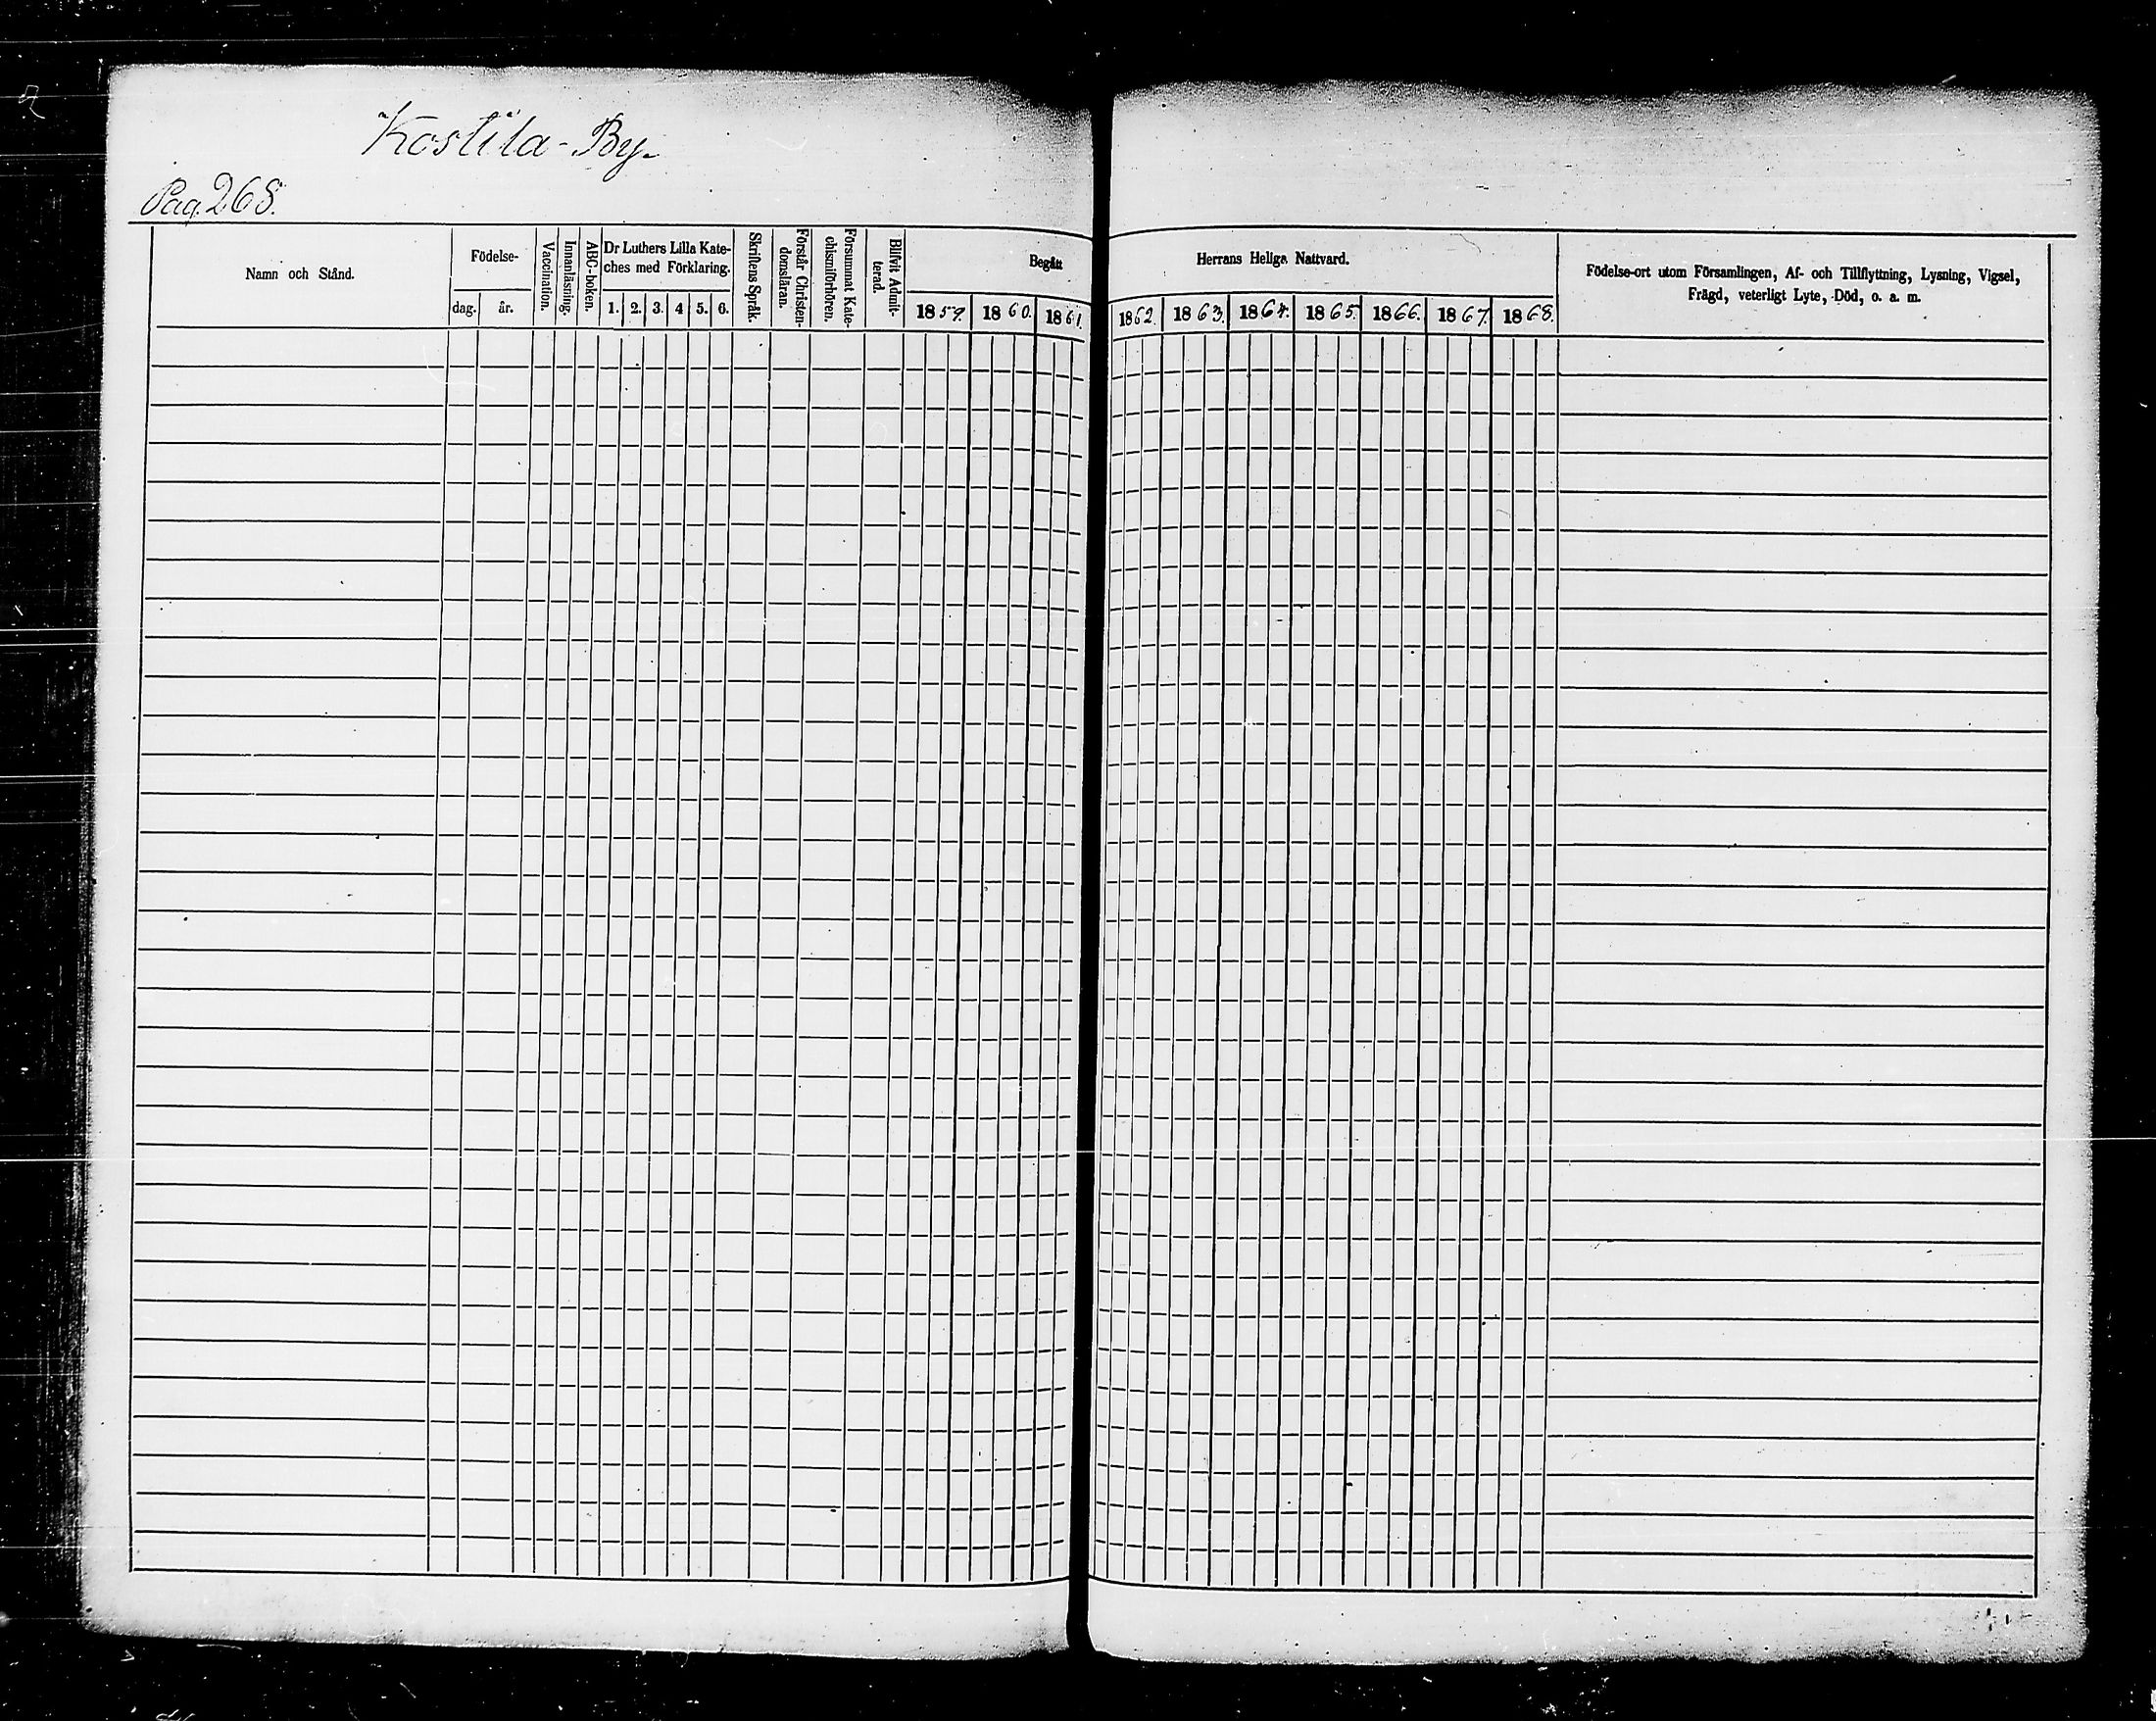 Kostila-By.
Pag. 268.
Namn och Stånd.
Födelse-
dag.
år.
Vaccination.
Innanläsning.
ABC-boken.
Dr Luthers Lilla Kate-
ches med Förklaring.
1. 2. 3. 4 5. 6.
Skriftens Språk.
Förstår Christen-
domsläran.
Försummat Kate-
chismiförhören.
Blifvit Admit-
terad.
Begått
1859. 1860. 1861.
Herrans Heliga Nattvard.
1862. 1863. 1864. 1865. 1866. 1867. 1868.
Födelse-ort utom Församlingen, Af- och Tillflyttning, Lysning, Vigsel,
Frägd, veterligt Lyte, Död, o. a. m.